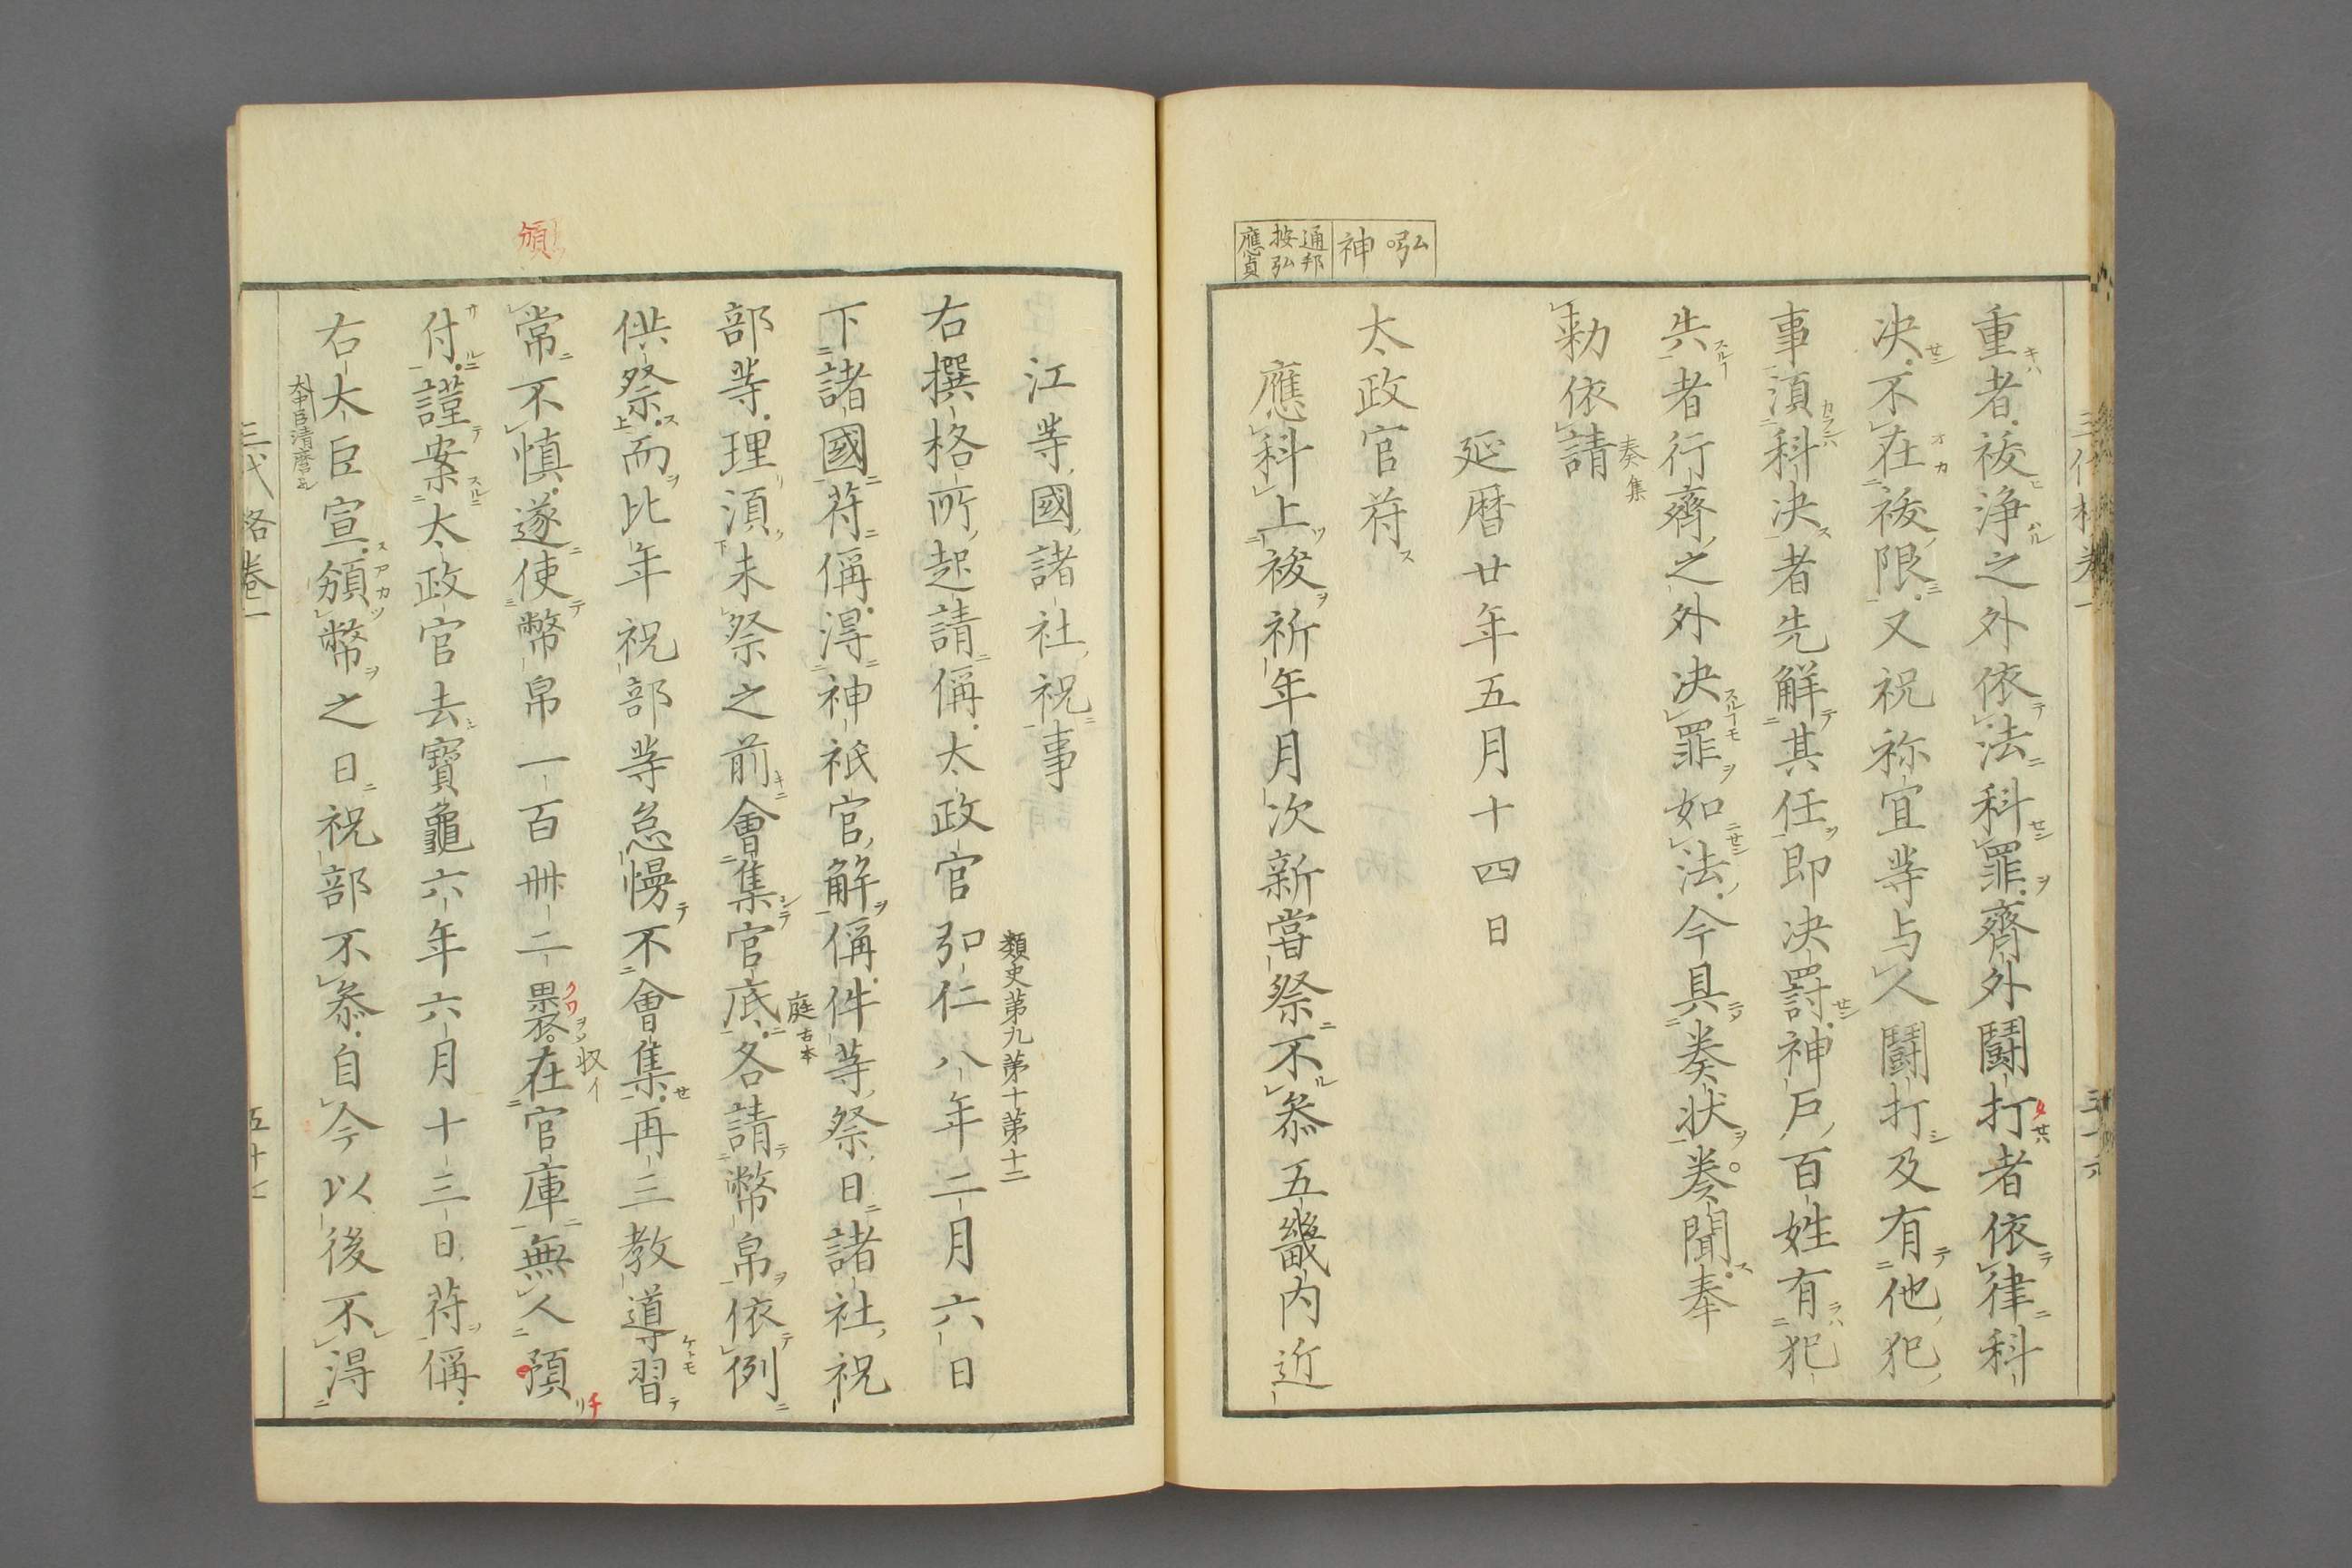 弘神
通邦按弘應貞
重者祓浄之外依法科罪齊外鬪打者依律科
决不在祓限又祝祢宜䓁与人鬪打及有他犯
事湏科决者先解其任即决罰神戸百姓有犯
失者行齊之外决罪如法今具奏状奏聞奉
勑依請
奏集
延暦廿年五月十四日
太政官符
應科上祓祈年月次新嘗祭不叅五畿内近
江䓁國諸社祝事
類史第九第十第十二
右撰格所起請偁太政官弘仁八年二月六日
下諸國符偁得神祇官解偁件等祭日諸社祝
部䓁理湏未祭之前會集官底各請幣帛依例
庭古本
供祭而比年祝部䓁怠慢不會集再三教導習
常不慎遂使幣帛一百卌二褁在官庫無人預
収イ
頒
付謹案太政官去寳龜六年六月十三日符偁
右大臣宣頒幣之日祝部不叅自今以後不得
大中臣清麿
三代格卷一
五十七